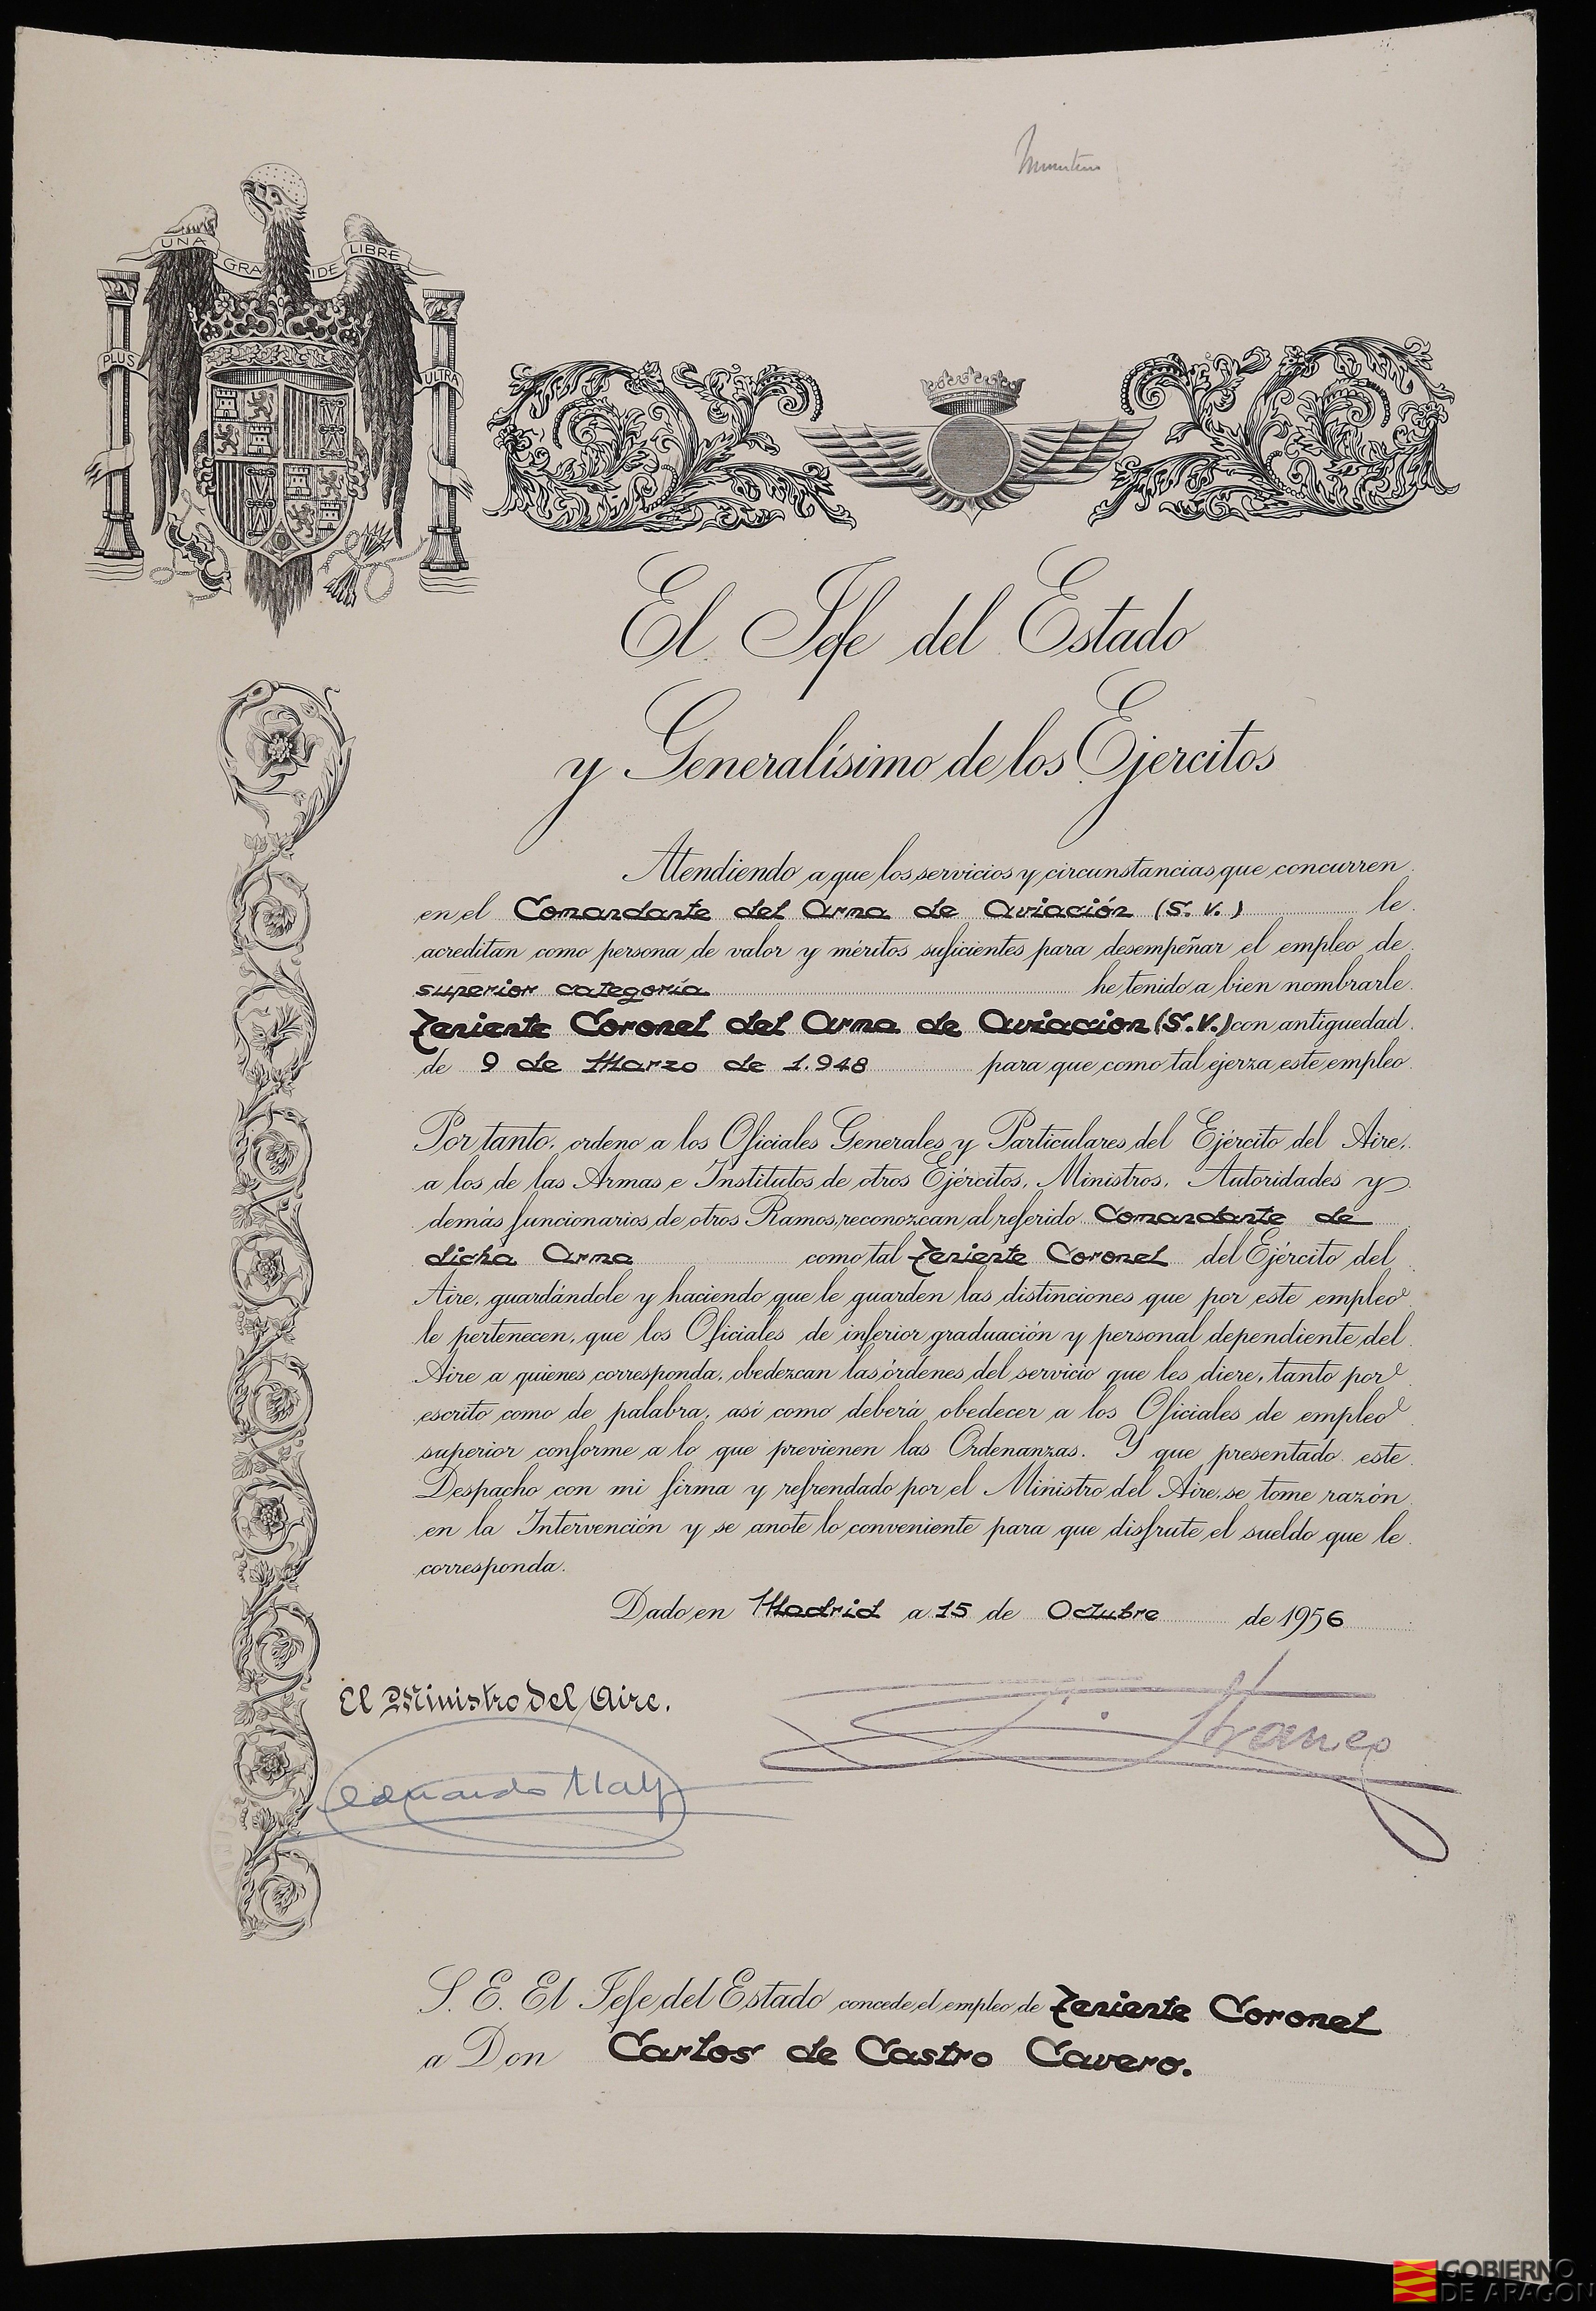 UNA GRANDE LIBRE
PLUS ULTRA
El Jefe del Estado
y Generalísimo de los Ejercitos
Atendiendo a que los servicios y circunstancias que concurren
en el Comandante del Arma de Aviación (S. V.) le
acreditan como persona de valor y méritos suficientes para desempeñar el empleo de
superior categoría he tenido a bien nombrarle
Teniente Coronel del Arma de Aviacion (S.V.) con antiguedad
de 9 de Marzo de 1.948 para que como tal ejerza este empleo
Por tanto, ordeno a los Oficiales Generales y Particulares del Ejército del Aire,
a los de las Armas e Institutos de otros Ejércitos, Ministros, Autoridades y
demás funcionarios de otros Ramos, reconozcan al referido Comandante de
dicha Arma como tal Teniente Coronel del Ejército del
Aire, guardándole y haciendo que le guarden las distinciones que por este empleo
le pertenecen, que los Oficiales de inferior graduación y personal dependiente del
Aire a quienes corresponda, obedezcan las órdenes del servicio que les diere, tanto por
escrito como de palabra, así como deberá obedecer a los Oficiales de empleo
superior conforme a lo que previenen las Ordenanzas. Y que presentado este
Despacho con mi firma y refrendado por el Ministro del Aire, se tome razón
en la Intervención y se anote lo conveniente para que disfrute el sueldo que le
corresponda.
Dado en Madrid a 15 de Octubre de 1956
El Ministro del Aire.
F. Franco
S. E. El Jefe del Estado concede el empleo de Teniente Coronel
a Don Carlos de Castro Cavero.
GOBIERNO
DE ARAGON